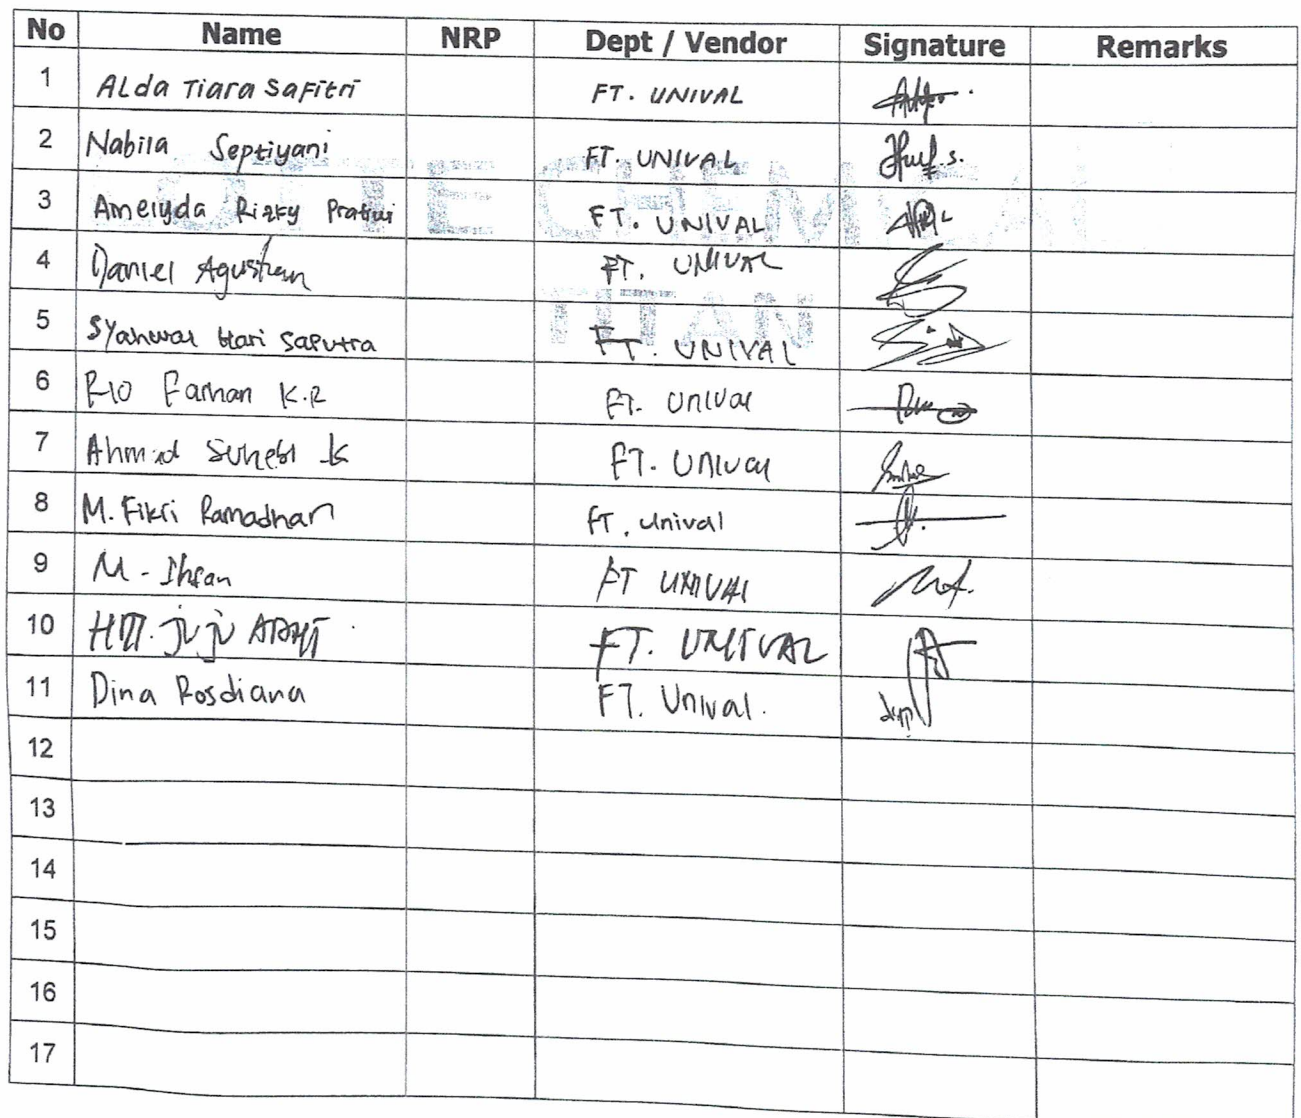 No Name NRP Dept / Vendor Signature Remarks
1 Alda Tiara Safitri FT. UNIVAL
2 Nabila Septiyani FT. UNIVAL
3 Amelyda Rizky Pratiwi FT. UNIVAL
4 Daniel Agustian FT. UNIVAL
5 Syahwal Hari Saputra FT. UNIVAL
6 Rio Farhan K.R FT. Unival
7 Ahmad Suhebi K FT. Unival
8 M. Fikri Ramadhan FT. Unival
9 M - Ihsan FT UNIVAl
10 JuJu FT. UNIVAL
11 Dina Rosdiana FT. Unival.
12
13
14
15
16
17
TITAN